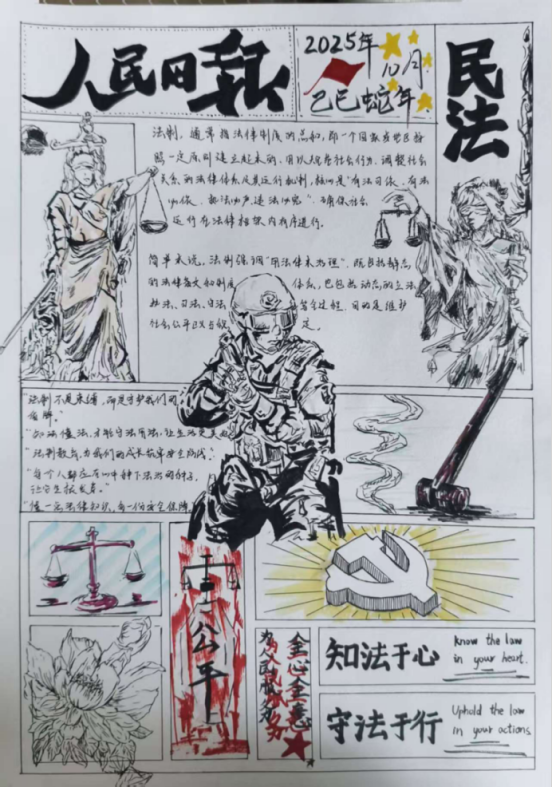 人民日报
2025年
10月
乙巳蛇年
民法
法制，通常指法律制度的总和，即一个国家或地区按
照一定原则建立起来的、用以规范社会行为、调整社会
关系的法律体系及其运行机制，核心是“有法可依、有法
必依、执法必严、违法必究”，确保社会
运行在法律框架内有序进行。
简单来说，法制强调“用法律来治理”，既包括静态
的法律条文和制度体系，也包括动态的立法
执法、司法、守法等全过程，目的是维护
社会公平正义与
法制不是束缚，而是守护我们的
“知法懂法，才能守法用法，让生活更美
“法制教育，为我们的成长筑牢安全防线。”
“每个人都应在心中种下法治的种子，
让它生根发芽。”
“懂一点法律知识，有一份安全保障
公平
为人民服务
为人民服务
全心全意
知法于心
Know the law
in your heart.
守法于行
Uphold the law
in your actions.